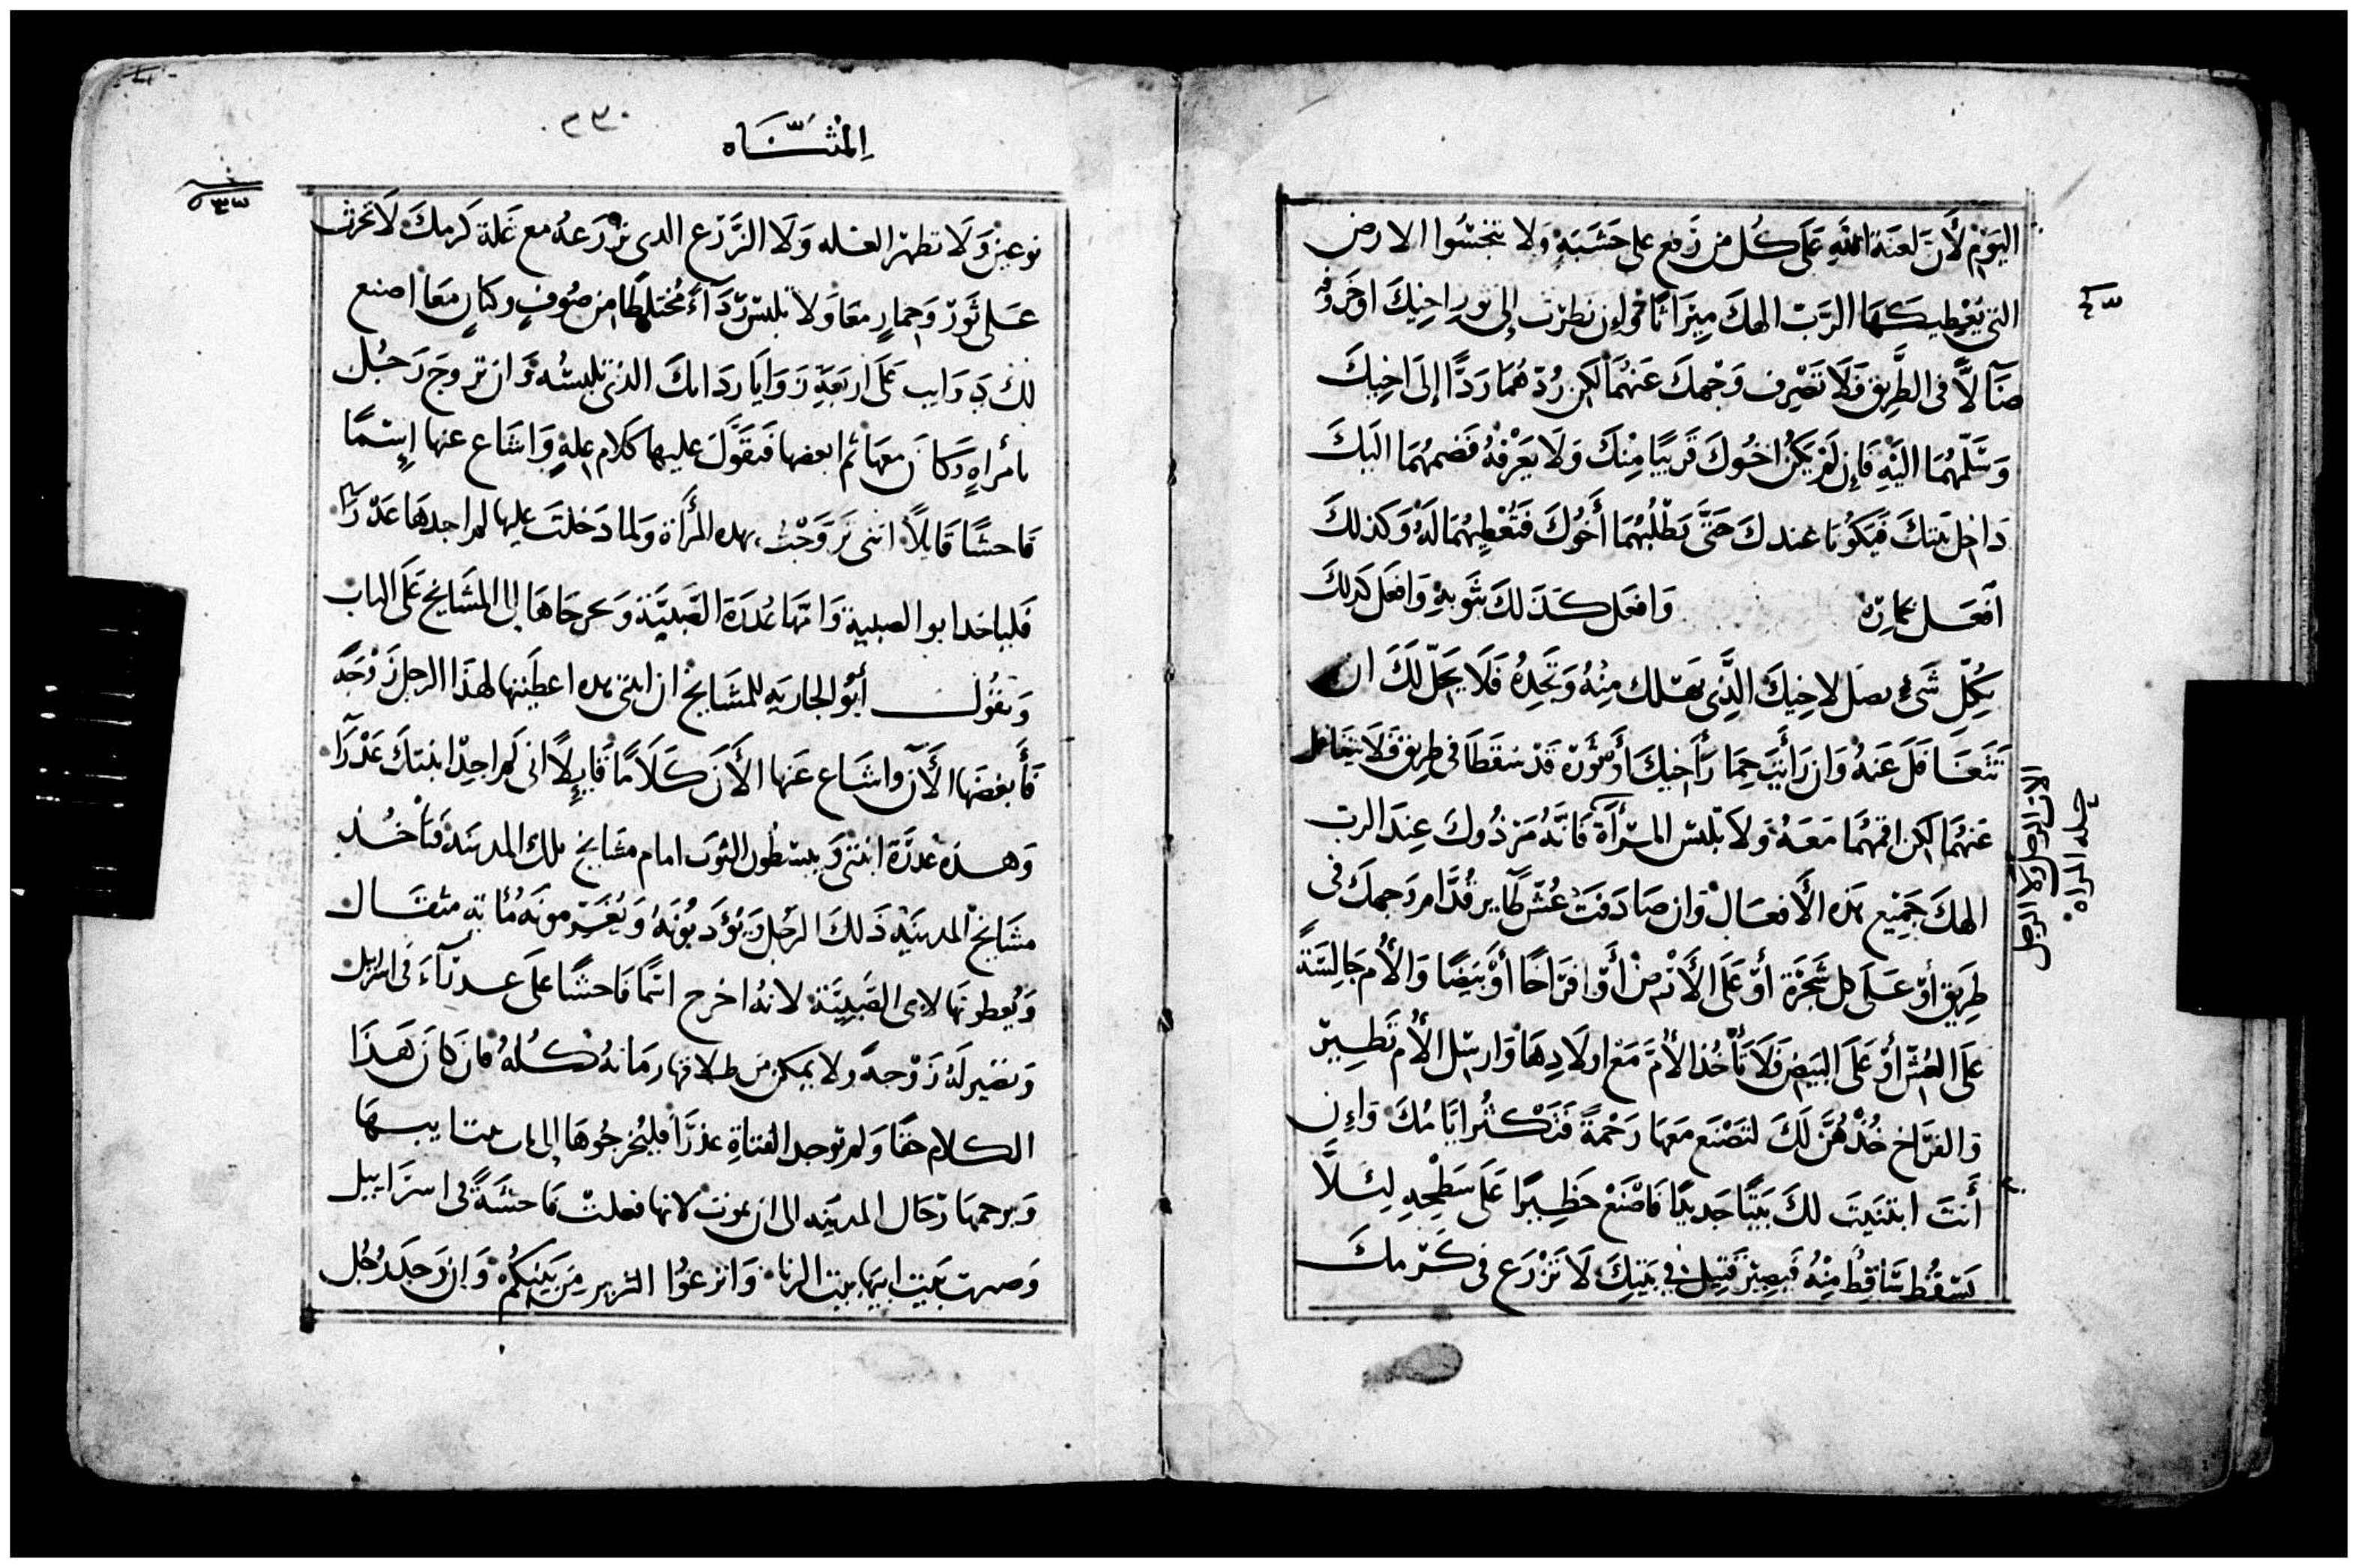 اليَوْم لأَنَّ لعنَة اللّهِ عَلَى كُل من رُفع على خَشَبَةٍ وَلا تنجسُوا الارض
التي يُعْطِيكَهَا الرَبّ الهكَ مِيرَاثًا وَإِن نظرْت إلى ثور اخِيكَ او خَروفه
ضَآلاًّ في الطَّرِيق فَلَا تصْرِف وَجْهكَ عَنهُمَا لكن رُدّهُمَا رَدًّا إلَى اخِيكَ
وَسَلّمهُمَا اليْهِ فَإِن لَم يَكُن اخُوكَ قَرِيبًا مِنْكَ وَلَا يَعْرِفهُ فَضمهُمَا اليكَ
دَاخِل بَيتكَ فَيَكُونَا عندكَ حَتَّى يَطْلُبهُمَا أَخُوكَ فَتُعْطِيهُمَا لَهُ وَكذلكَ
افعَل بحمارِه وَافعَل كَذَلكَ بثَوبهِ وَافعَل كذلكَ
بكُلِّ شَيْءٍ يضل لاخِيكَ الَّذِي يَهلك مِنْهُ وَتَجِدهُ فَلَا يَحِلّ لَكَ ان
تَتَغَافَل عَنهُ وَان رَأيتَ حِمَارَ أَخِيكَ أَوْ ثَوْرَهُ قَدْ سَقَطَا في طرِيق فَلَا تتغَافل
عَنهُمَا لكن اقمهُمَا مَعَهُ وَلَا تلبس المرْأَة فَانَّهُ مَرْذُوك عِندَ الرب
الهكَ جَمِيع هَذه الأَفعَال وَان صَادَفتَ عُشّ طَآير قُدَّام وَجهكَ في
طَرِيق أَوْ عَلَى كل شَجَرَة أَوْ عَلَى الأَرْض أَوْ افرَاخًا أَوْ بَيضًا وَالأُم جَالِسَةً
عَلَى العُشّ أَوْ عَلَى البَيض فَلَا تَأْخُذ الأُمّ مَع اولَادِهَا وَارسِل الأُم تَطِير
وَالفرَاخ خُذْهُنَّ لَكَ لتصْنَع مَعهَا رَحْمَةً فَتَكْثُر ايَّامُكَ وَإِن
أَنتَ ابتنَيتَ لكَ بَيتًا جَديدًا فَاصْنَعْ حَظِيرًا عَلَى سَطْحِهِ لِئَلَّا
يَسْقُط سَاقِطٌ مِنْهُ فَيَصِير قَتِيل في بَيتِكَ لَا تَزْرَع في كَرْمكَ
الان الرجل
حله المراه
المثنَّاه
٢٣٠
نوعين وَلَا تطهر الغله وَلَا الزَّرْع الدى تزْرَعهُ مع غَلة كَرمكَ لَا تحرث
عَلى ثَوْر وَحِمارٍ مَعًا وَلَا تلبسْ رِدَآءً مُختلِطًا من صُوفٍ وكتانٍ مَعًا اصنع
لك ذوَايب عَلَى اربَعَةِ زَوَايَا ردَايكَ الذي تلبسُه وَان تزوجَ رَجُل
بامراهٍ وَكَانَ معهَا ثم ابغضها فَتقَوَّلَ عليها كَلَام علةٍ وَاشَاع عنها إِسْمًا
فاحشًا قَايلاً انني تزَوَّجتُ بهده المرأَة وَلما دَخلتَ عليها لم اجدهَا عَدْرَآ
فَليَاخد ابو الصبية وَامّهَا عُدرَة الصَّبِيَّة وَيخرجَاهَا إلى المشَايخ عَلَى الباب
وَيقُول أَبو الجاريه للمشَايخ ان ابنتي هده اعطيتها لهَذَا الرجل زَوْجَةً
فَأَبغضَهَا الأَن وَاشَاع عَنها الأَنَ كَلَامًا قَايلاً اني لم اجِدْ ابنتكَ عَدْرَآ
وَهَذه عدْرَة ابنتي وَيبسُطُون الثوب امام مشَايخ تلك المدينَة فتأخُذ
مشَايخ المدينَه ذَلكَ الرجُل وَيُؤدبُونَهُ وَيُغَرّمونَهُ مُايَة مثقَال
وَيُعطونَها لابي الصَّبِيَّة لانهُ اخرج اسمًا فَاحشًا عَلَى عدرَآءَ في اسرَايل
وَتصِير لَهُ زَوْجةً ولا يمكن من طلاقها زمَانهُ كُلهُ فان كَان هَذَا
الكلام حقًا وَلم توجد الفتاةِ عذرَآ فليُخرجُوهَا إلى باب بيت ابيهَا
وَيرجمهَا رجَال المدينَه الى ان تموت لانها فعلتْ فَاحشَةً في اسرَاييل
وَصيرت بَيت ابيهَا بيت الزنا وَانزعُوا الشرير مِن بَينكُم وَان وَجدَ رَجُل